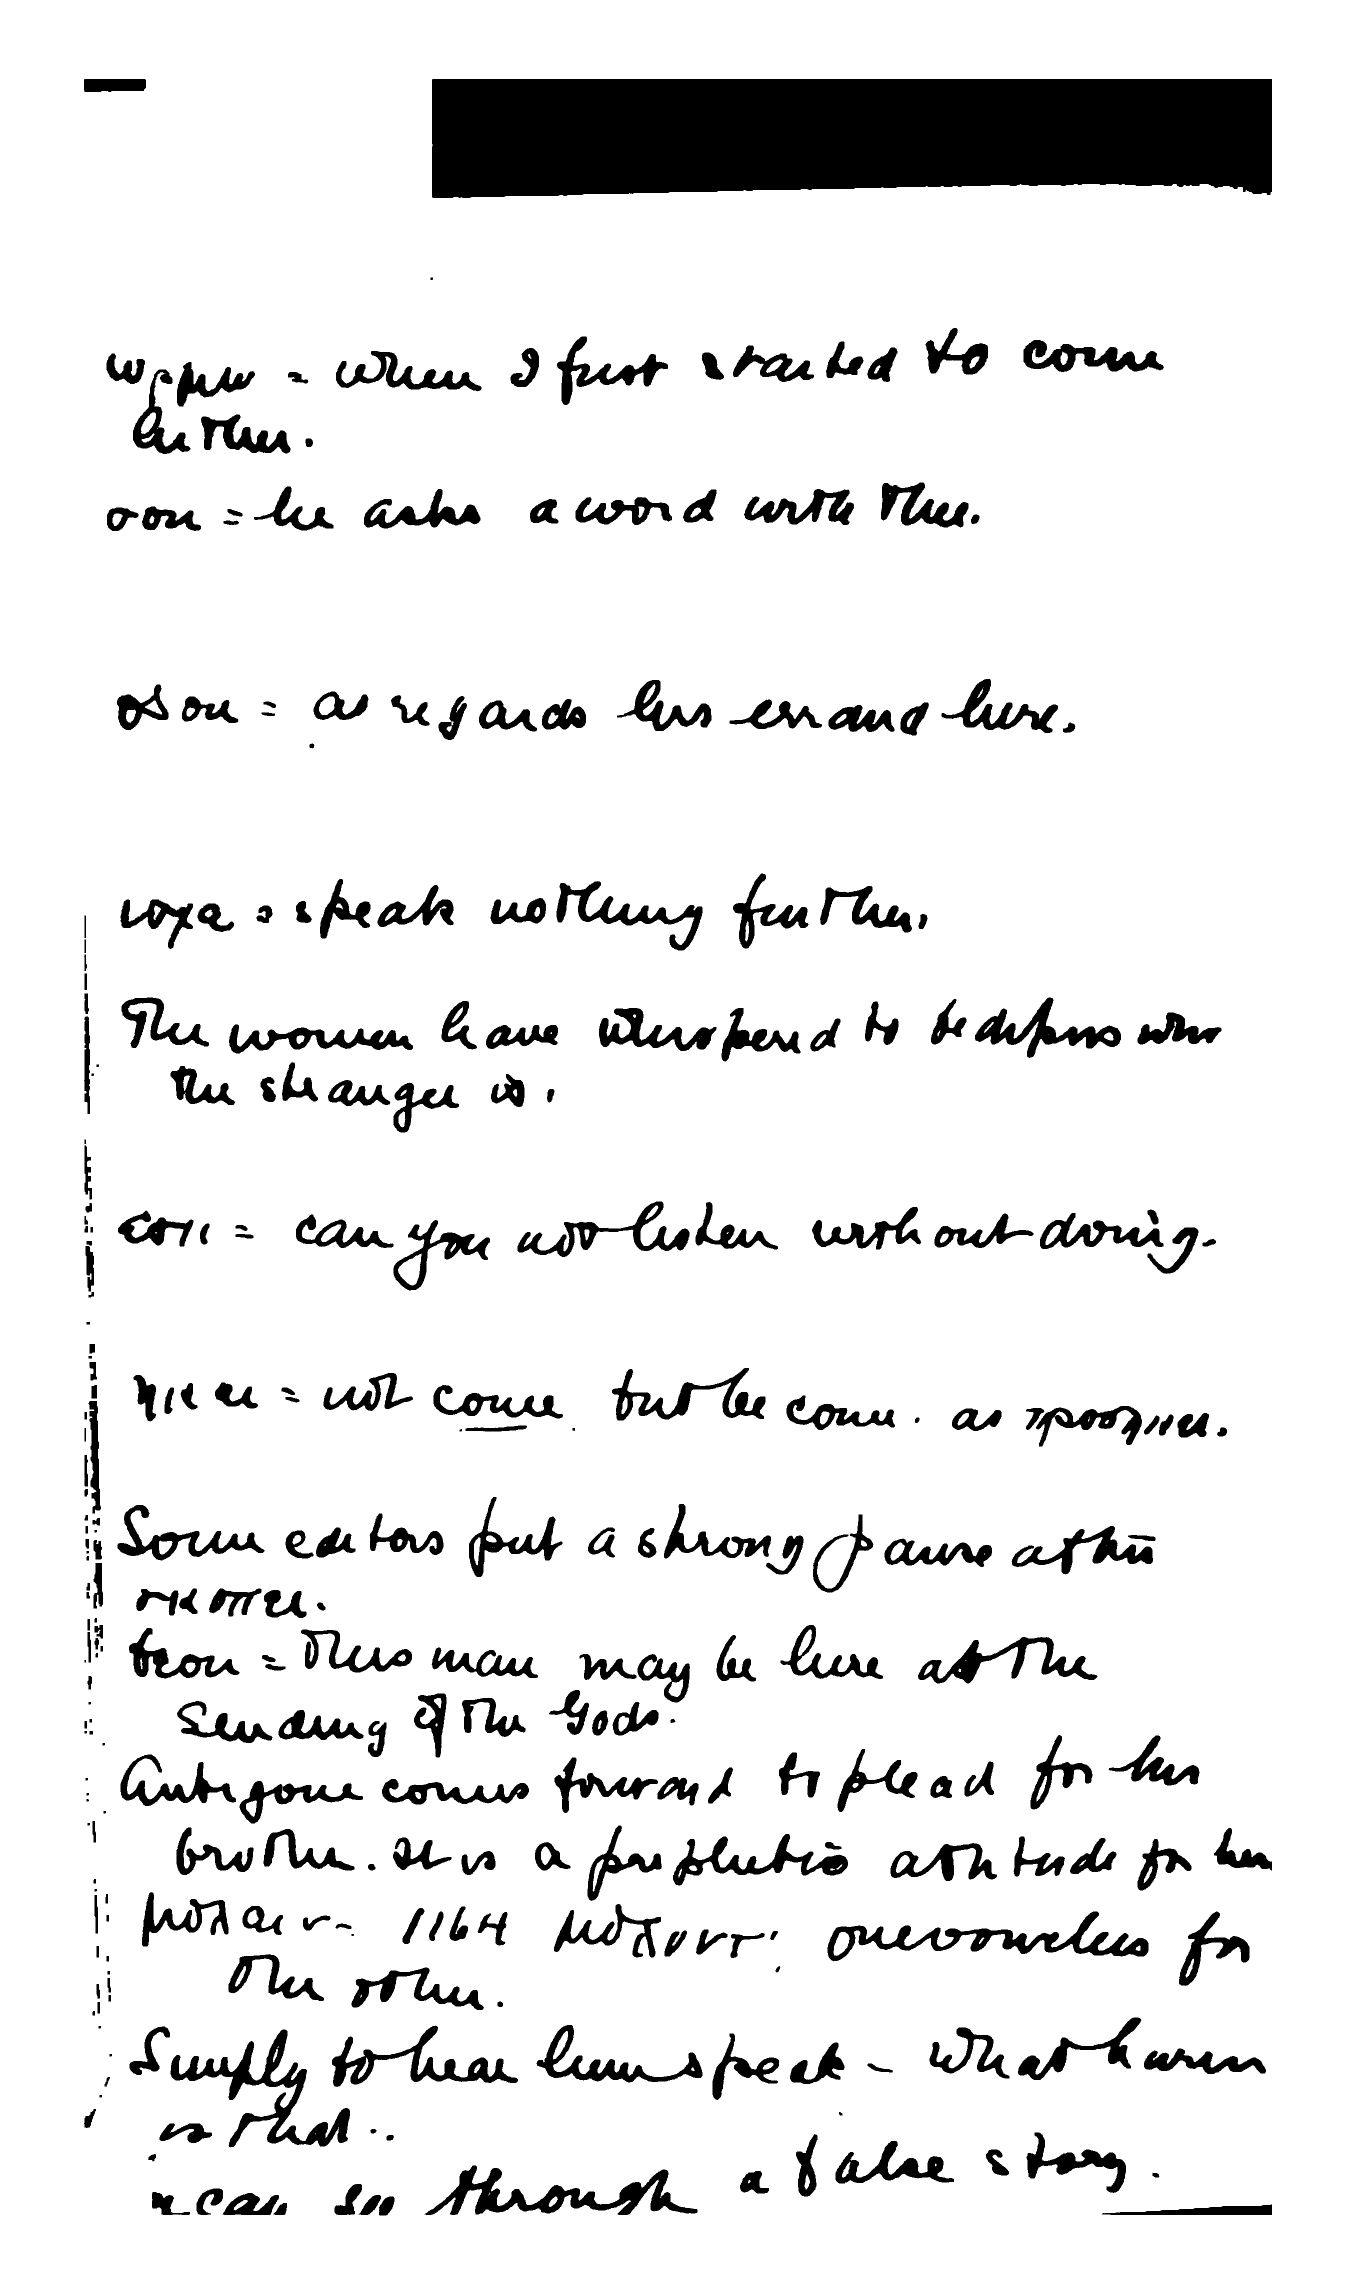 ωρμω = when I first started to come
hither.
σου = he asks a word with thee.
οδου = as regards his errand here.
ισχε = speak nothing further.
The women have whispered to Oedipus who
the stranger is.
εστι = can you not listen without doing.
ηκει = not come but become. as προσηκει.
Some editors put a strong pause after
σκοπει.
θεου = This man may be here at the
sending of the Gods.
Antigone comes forward to plead for her
brother. It is a prophetic attitude for her
μολειν - 1164 μολοντ' one vowel for
the other.
Simply to hear him speak - what harm
is that..
u can see through a false story.